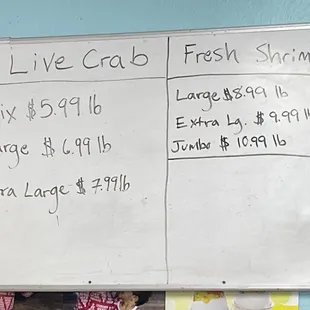 Live Crab
ix $5.99 lb
arge $6.99 lb
ra Large $7.99 lb
Fresh Shrim
Large $8.99 lb
Extra Lg. $9.99 l
Jumbo $10.99 lb